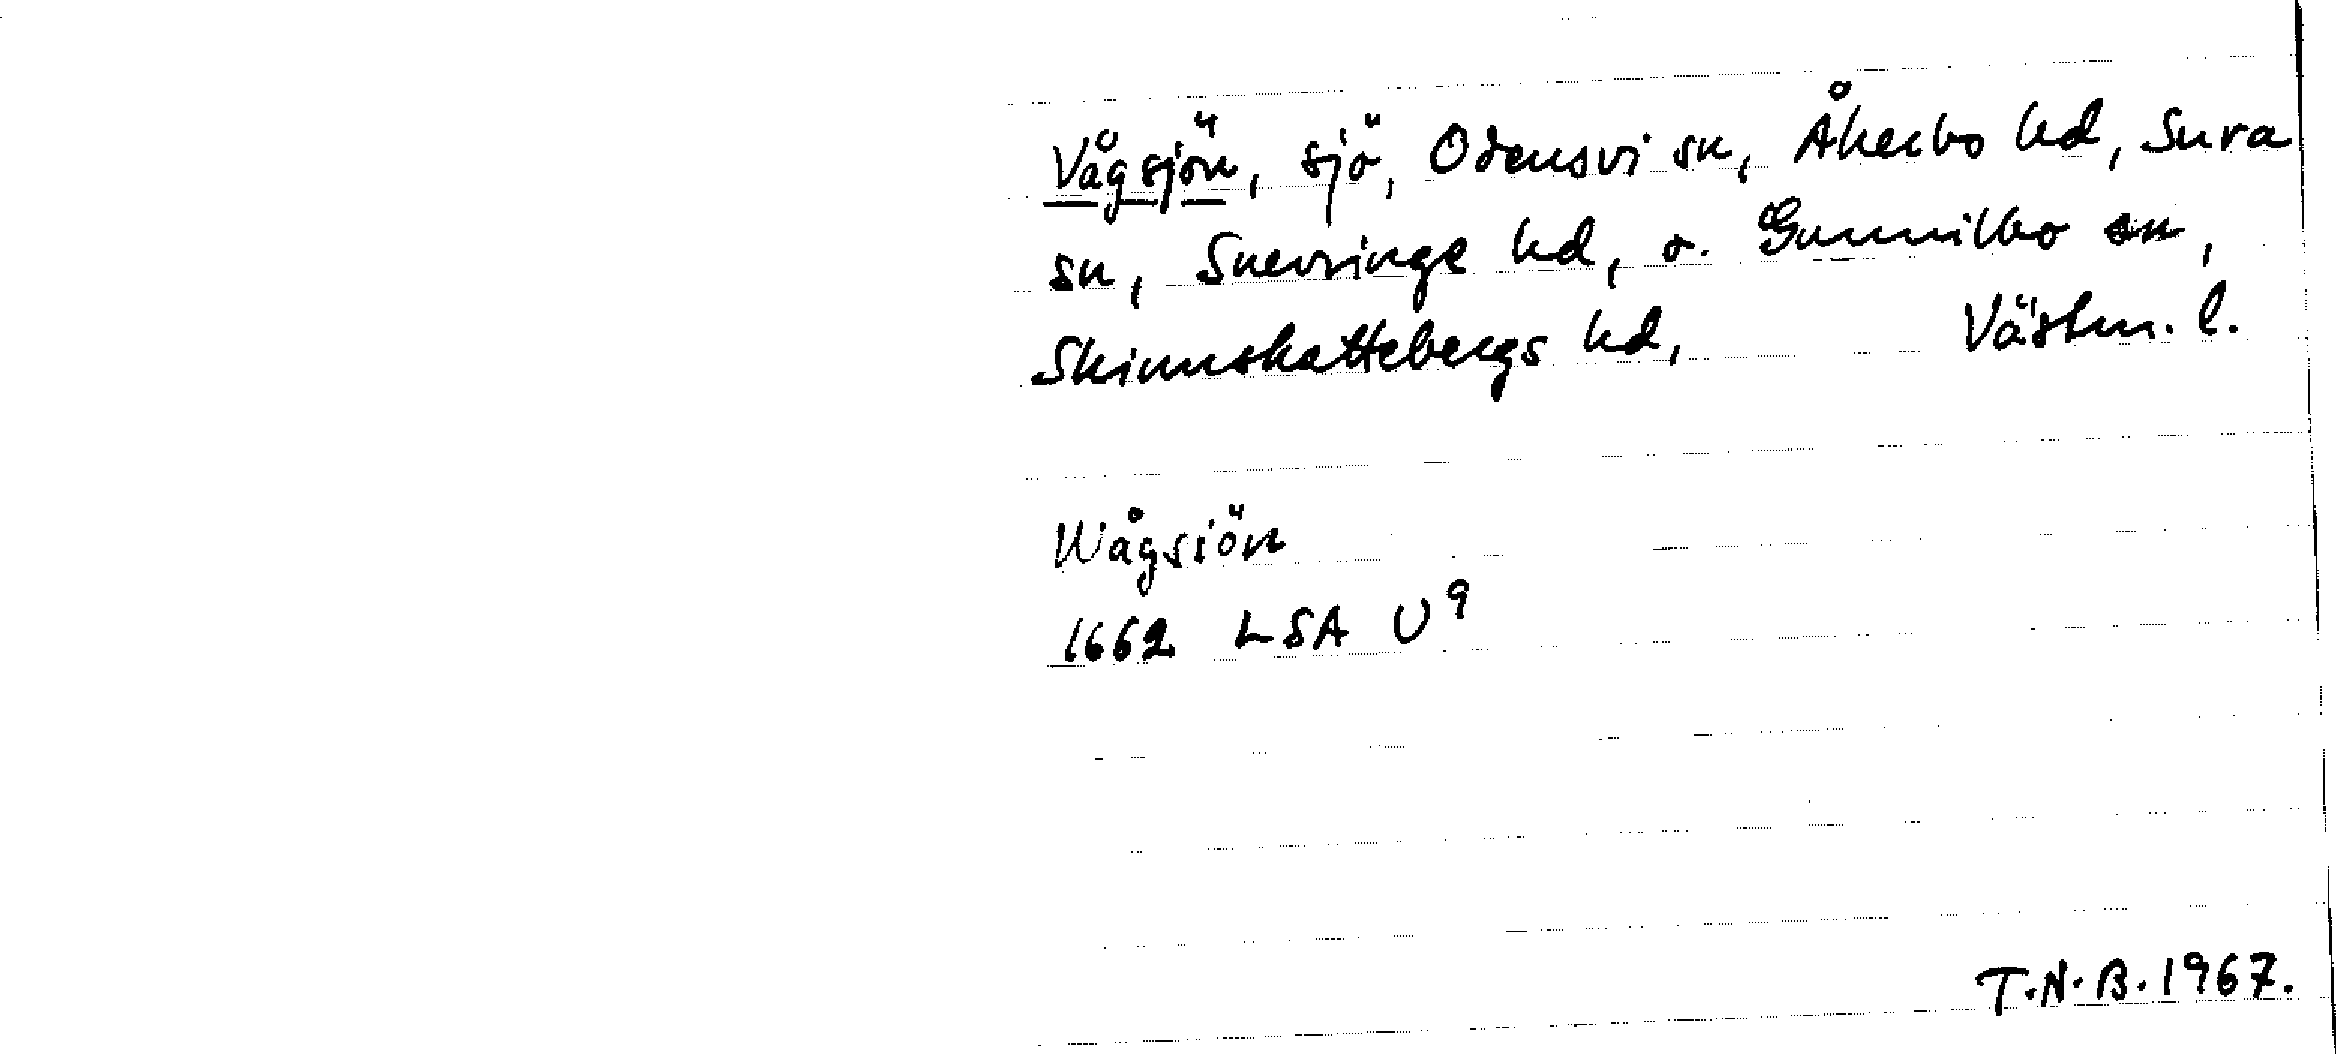 Vågsjön, sjö, Odensvi sn, Åkerbo hd, Sura
sn, Snevringe hd, o. Gunnilbo sn,
Skinnskattebergs hd, Västm. l.
Wågsiön
1662 LSA U9
T.N.B. 1967.